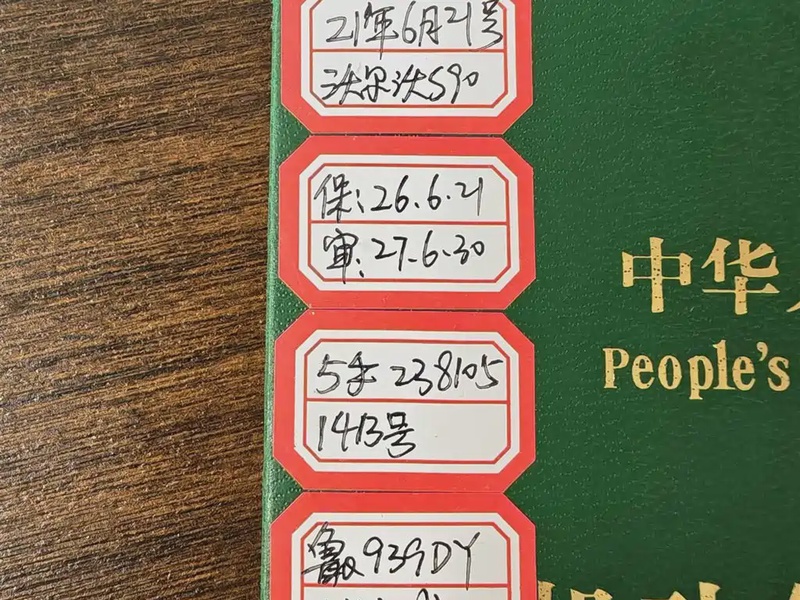 21年6月21号
沃尔沃S90
保:26.6.21
审:27.6.30
5手 238105
1413号
939DY
中华
People's